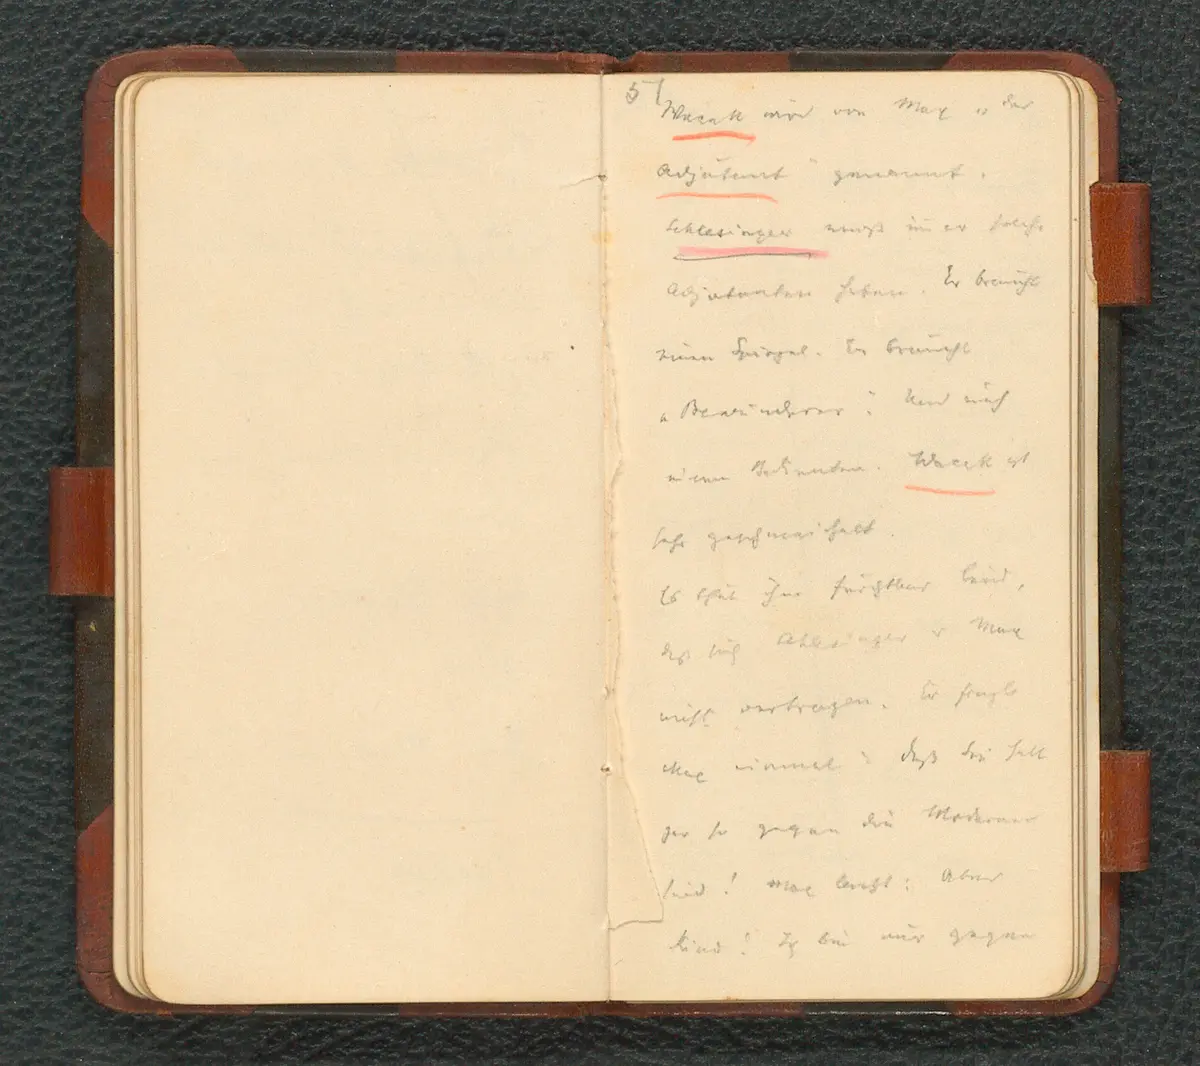 51
Wacek wird von Max „der
Adjutant“ genannt.
Schlesinger muß immer solche
Adjutanten haben. Er braucht
einen Spiegel. Er braucht
„Bewunderer“! Und auch
einen. Wacek ist
sehr geschmeichelt.
Es thut ihm furchtbar leid,
daß sich Schlesinger u Max
nicht vertragen. Er fragt
Max einmal: daß Sie halt
gar so gegen die Moderne
sind! Max lacht: Aber
Kind! Ich bin nur gegen